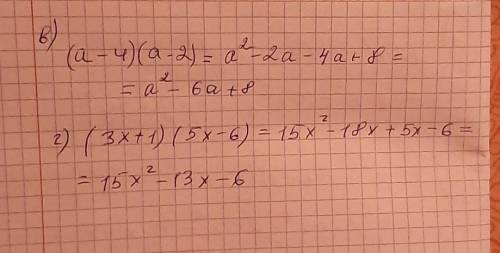 в)
(a-4)(a-2) = a²-2a-4a+8 =
= a²-6a+8
г) (3x+1)(5x-6) = 15x²-18x+5x-6 =
= 15x²-13x-6